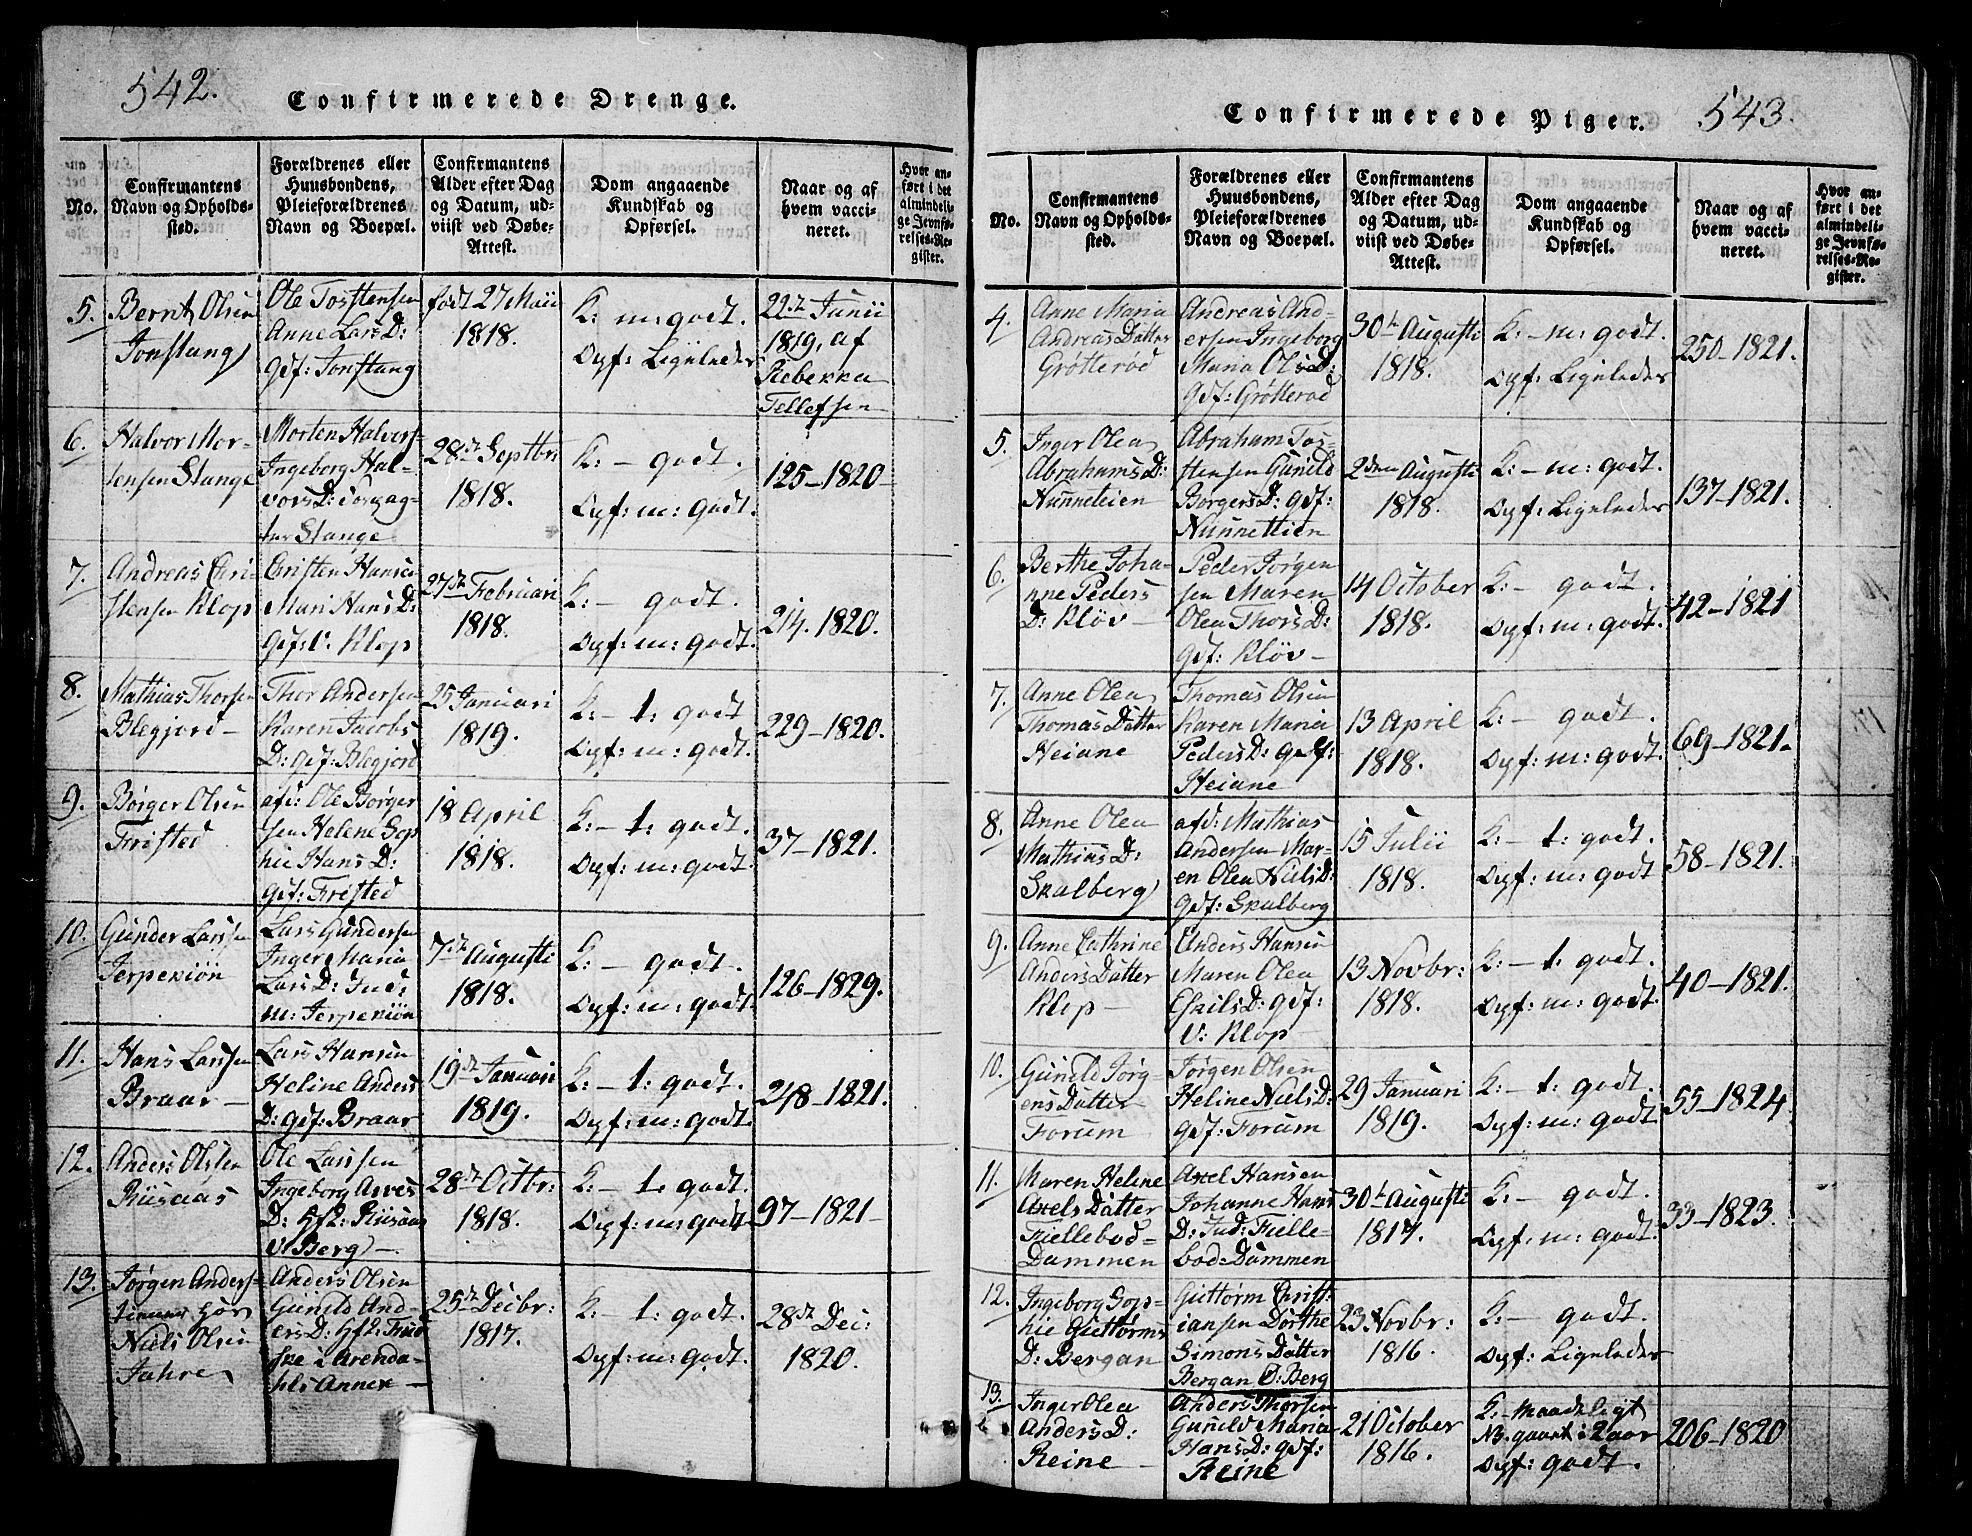 542.
Confirmerede Drenge.
No.
Confirmantens Navn og Opholds-sted.
Forældrenes eller Huusbondens, Pleieforældrenes Navn og Boepæl.
Confirmantens Alder efter Dag og Datum, ud-viist ved Døbe-Attest.
Dom angaaende Kundskab og Opførsel.
Naar og af hvem vacci-neret.
Hvor an-ført i det almindeli-ge Jevnfø-relses-Re-gister.
5.
Bernt Olsen
Jonstang
Ole Tosttensen
Anne Lars D:
Gdf: Jonstang
født 27 Maii
1818.
K: m: godt.
Opf: Ligeledes
22de Junii
1819, af
Rebekka
Tellefsen
6.
Halvor Mor-
tensen Stange
Morten Halvers-
Ingeborg Hal-
vors D:
Stange
28de Septbr
1818.
K: – godt.
Opf: m: godt.
125–1820–
7.
Andreas Chri-
stensen Klop
Christen Hansen
Mari Hans D:
Gdf: V: Klop
27de Februari
1818.
K: – godt.
Opf: m: godt.
214. 1820.
8.
Mathias Thorsen
Blegjord–
Thor Andersen
Karen Jacobs
D: gdf: Blegjord
25 Januari
1819.
K: – t: godt
Opf: m: godt.
229–1820.
9.
Børger Olsen
Fristed
afd: Ole Børger
sen Helene Sop
hie Hans D:
gdf: Fristed
18 April
1818.
K: – t: godt.
Opf: m: godt.
37–1821.
10.
Gunder Larssen
Jerpekiøn
Lars Gundersen
Inger Maria
Lars D: Ind:
m: Jerpekiøn
7de Augusti
1818.
K: – godt.
Opf: m: godt.
126–1829.
11.
Hans Larssen
Braar–
Lars Hansen
Heline Anders
D: gdf: Braar
19de Januari
1819.
K: – t: godt.
Opf: m: godt.
248–1821.
12.
Anders Olsen
Riisaas
Ole Larssen
Ingeborg Arves
D: Hf2: Riisaas
v: Berg–
28de Octbr:
1818.
K: – t: godt.
Opf: m: godt
97–1821–
13.
Jørgen Anders-
tienner hos
Niels Olsen
Jahre
Anders Olsen
Gunild And-
ers D: Hf2:
ske i Arenda-
hls Annex–
25de Decbr:
1817.
K: – t: godt.
Opf: m: godt.
28de Dec:
1820.
Confirmerede Piger.
543.
No.
Confirmantens Navn og Opholds-sted.
Forældrenes eller Huusbondens, Pleieforældrenes Navn og Boepæl.
Confirmantens Alder efter Dag og Datum, ud-viist ved Døbe-Attest.
Dom angaaende Kundskab og Opførsel.
Naar og af hvem vacci-neret.
Hvor an-ført i det almindeli-ge Jevnfø-relses-Re-gister.
4.
Anne Maria
Andreas Datter
Grøtterød
Andreas And-
ersen Ingeborg
Maria Ols D:
Gdf: Grøtterød
30te Augusti
1818.
K: – m: godt.
Opf: Ligeledes
250–1821.
5.
Inger Olea
Abrahams D:
Nunneteien
Abraham Tos-
stensen Gunild
Borgers D: gdf:
Nunnettien
2den Augusti
1818.
K: – m: godt.
Opf: Ligeledes
137–1821.
6.
Berthe Joha-
nne Peders
D: Kløv–
Peder Jørgen
sen Maren
Olea Thors D:
Gdf: Kløv–
14 October
1818.
K: – godt.
Opf: m: godt.
42–1821
7.
Anne Olea
Thomas Datter
Heiane
Thomas Olsen
Karen Maria
Peders D: gdf:
Heiane
13 April
1818.
K: – godt.
Opf: m: godt.
69–1821.
8.
Anne Olea
Mathias D:
Skalberg
afd: Mathias
Andersen Mar-
en Olea Niels D:
Gdf: Skalberg
15 Julii
1818.
K: – t: godt.
Opf: m: godt
58–1821.
9.
Anne Cathrine
Anders Datter
Klop–
Anders Hansen
Maren Olea
Eskils D: gdf:
V: Klop–
13 Novbr:
1818.
K: – t: godt.
Opf: m: godt.
40–1821.
10.
Gunild Jørg-
ens Datter
Forum
Jørgen Olsen
Heline Niels D:
Gdf: Forum
29 Januari
1819.
K: – t: godt.
Opf: m: godt
55–1824
11.
Maren Helene
Axels Datter
Fiellebod–
Dammen
Axel Hansen
Johanne Hans
D: Ind: Fielle-
bod–Dammen
30te Augusti
1817.
K: – godt.
Opf: m: godt.
33–1823.
12.
Ingeborg Sop-
hie Guttorms
D: Bergan
Guttorm Christ-
iansen Dorthe
Simons Datter
Bergan Ø: Berg
23 Novbr:
1816.
K: – godt.
Opf: Ligeledes
13.
Inger Olea
Anders D:
Reine –
Anders Thorsen
Gunild Maria
Hans D: gdf:
Reine
21 October
1816.
K: – maadeligt
NB. gaaet i 2 aar
Opf: godt.
206–1820